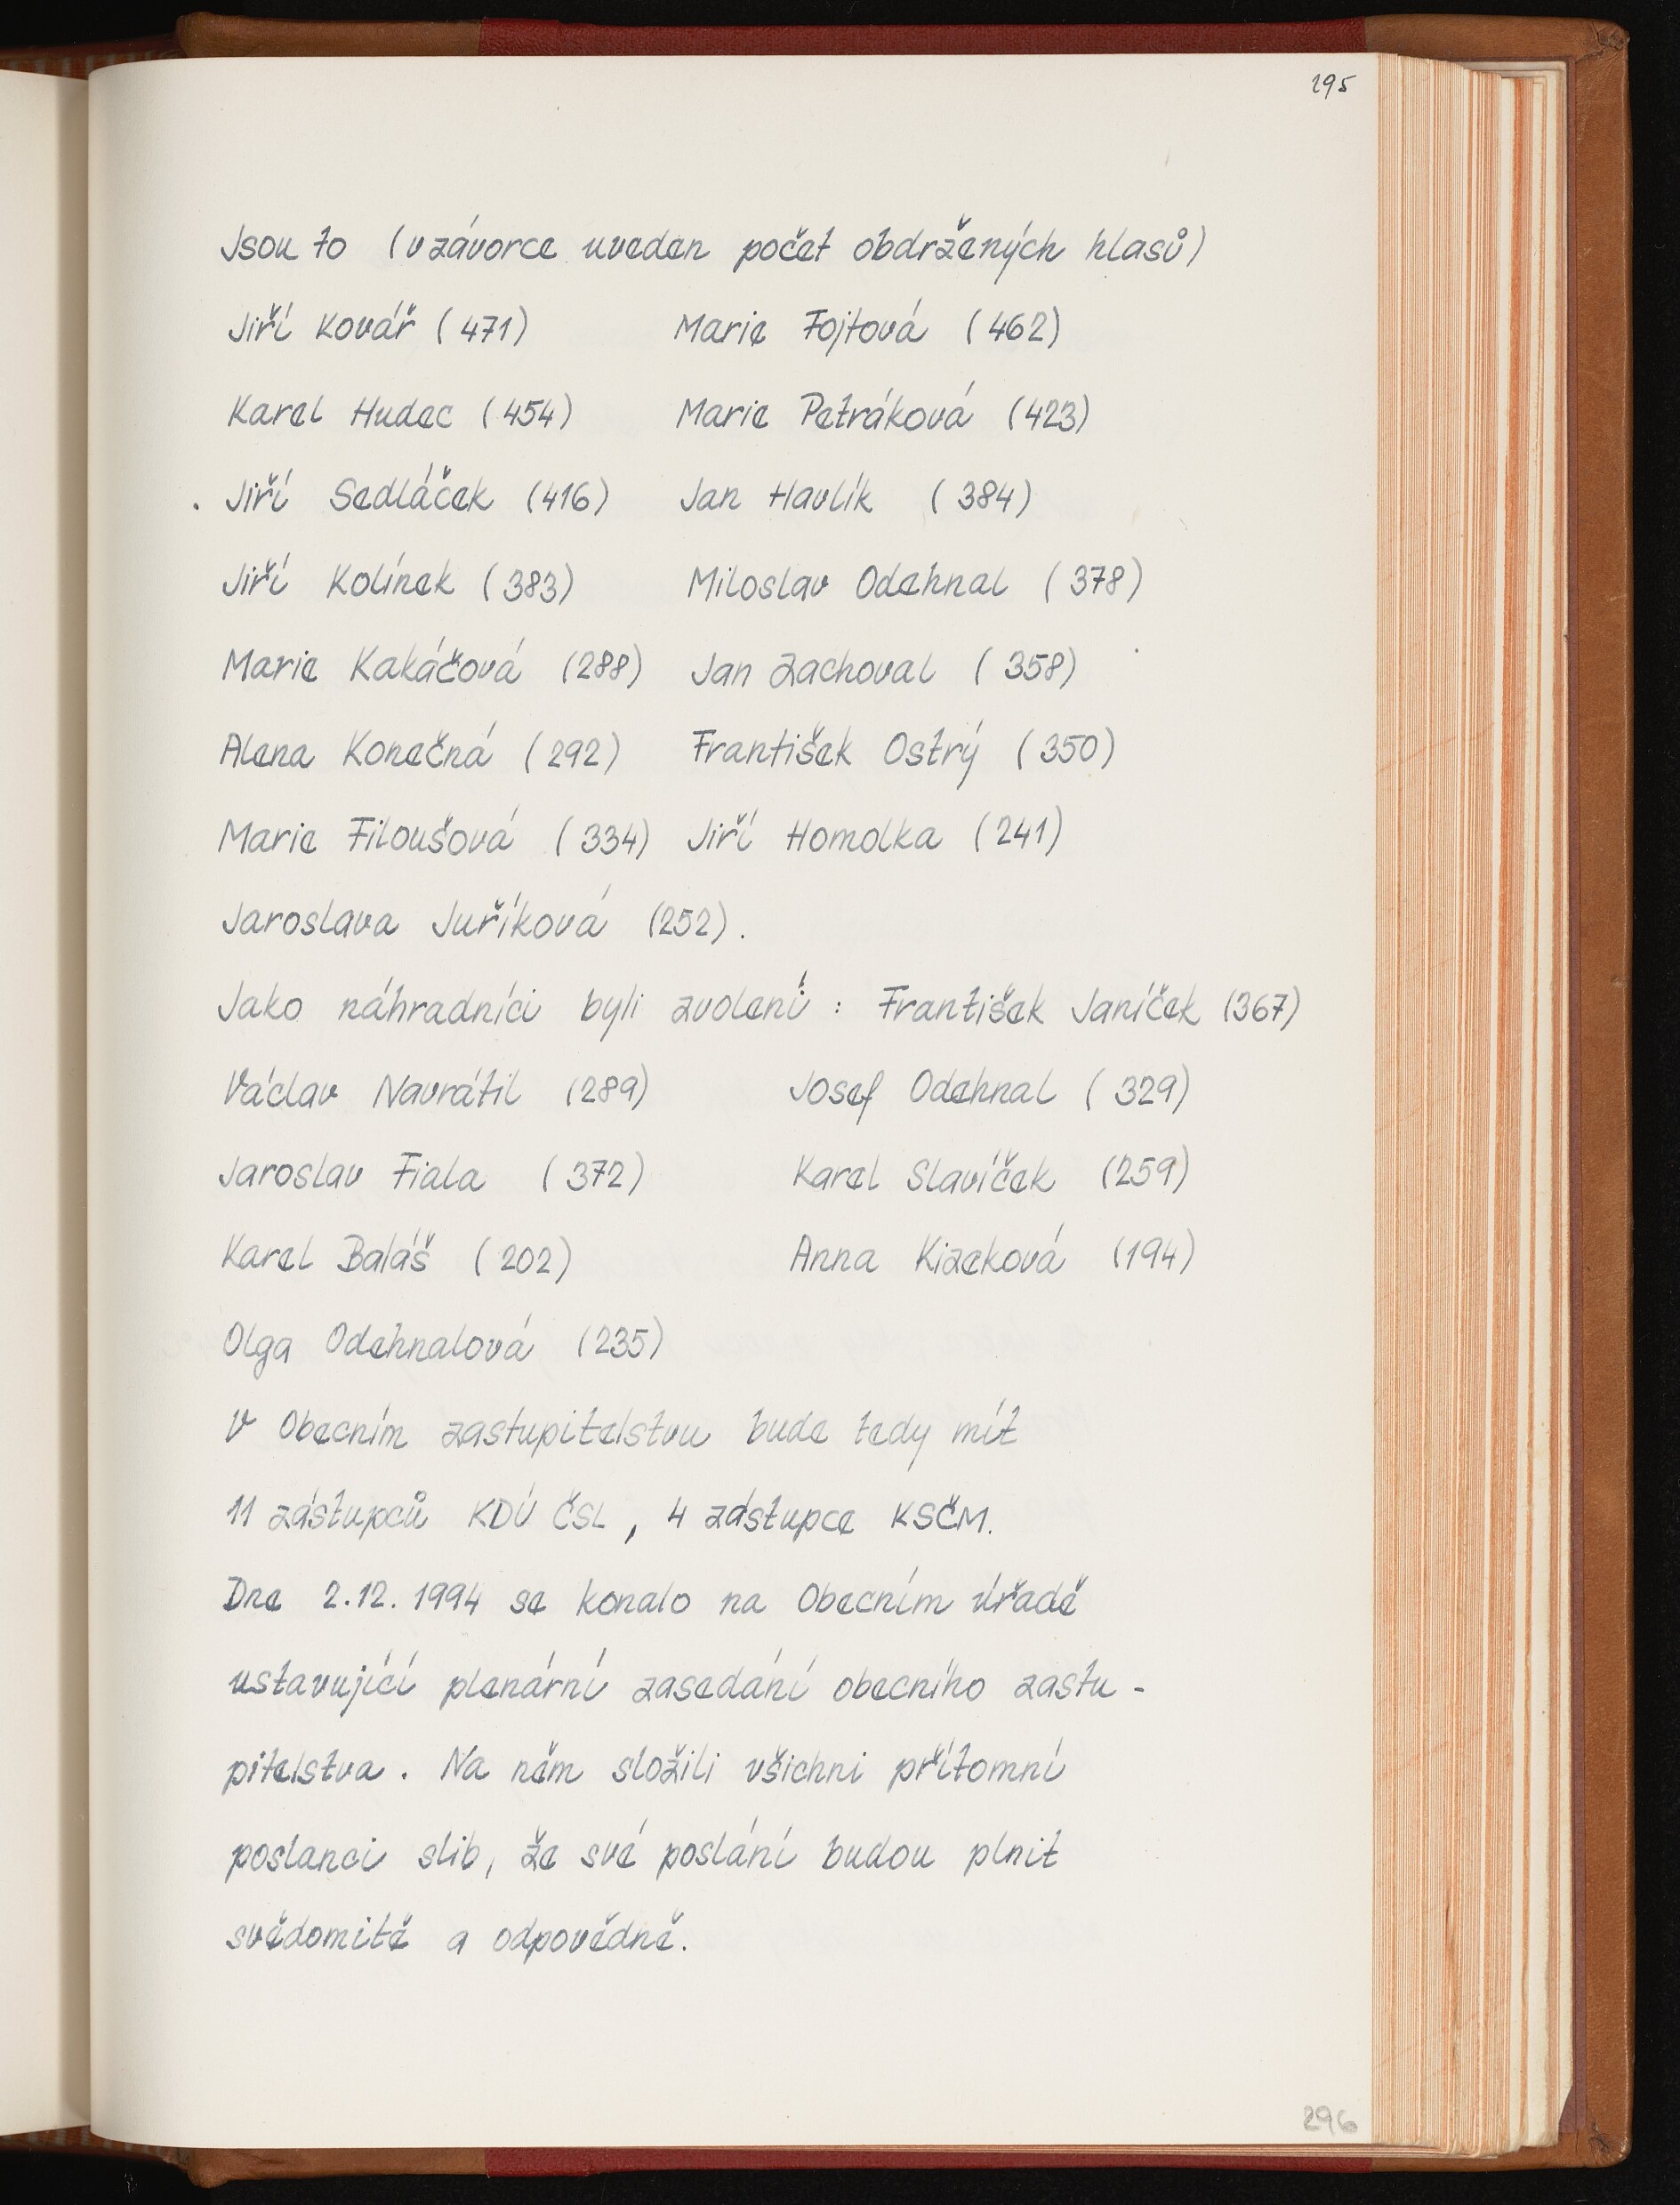 295
Jsou to (v závorce uveden počet obdržených hlasů)
Jiří Kovář (471) Marie Fojtová (462)
Karel Hudec (454) Marie Petráková (423)
Jiří Sedláček (416) Jan Havlík (384)
Jiří Kolínek (383) Miloslav Odehnal (378)
Marie Kakáčová (288) Jan Zachoval (358)
Alena Konečná (292) František Ostrý (350)
Marie Filoušová (334) Jiří Homolka (241)
Jaroslava Juříková (252).
Jako náhradníci byli zvoleni : František Janíček (367)
Václav Navrátil (289) Josef Odehnal (329)
Jaroslav Fiala (372) Karel Slavíček (259)
Karel Baláš (202) Anna Kizeková (194)
Olga Odehnalová (235)
V Obecním zastupitelstvu bude tedy mít
11 zástupců KDÚ ČSL, 4 zástupce KSČM.
Dne 2.12. 1994 se konalo na Obecním úřadě
ustavující plenární zasedání obecního zastu-
pitelstva. Na něm složili všichni přítomní
poslanci slib, že své poslání budou plnit
svědomitě a odpovědně.
296